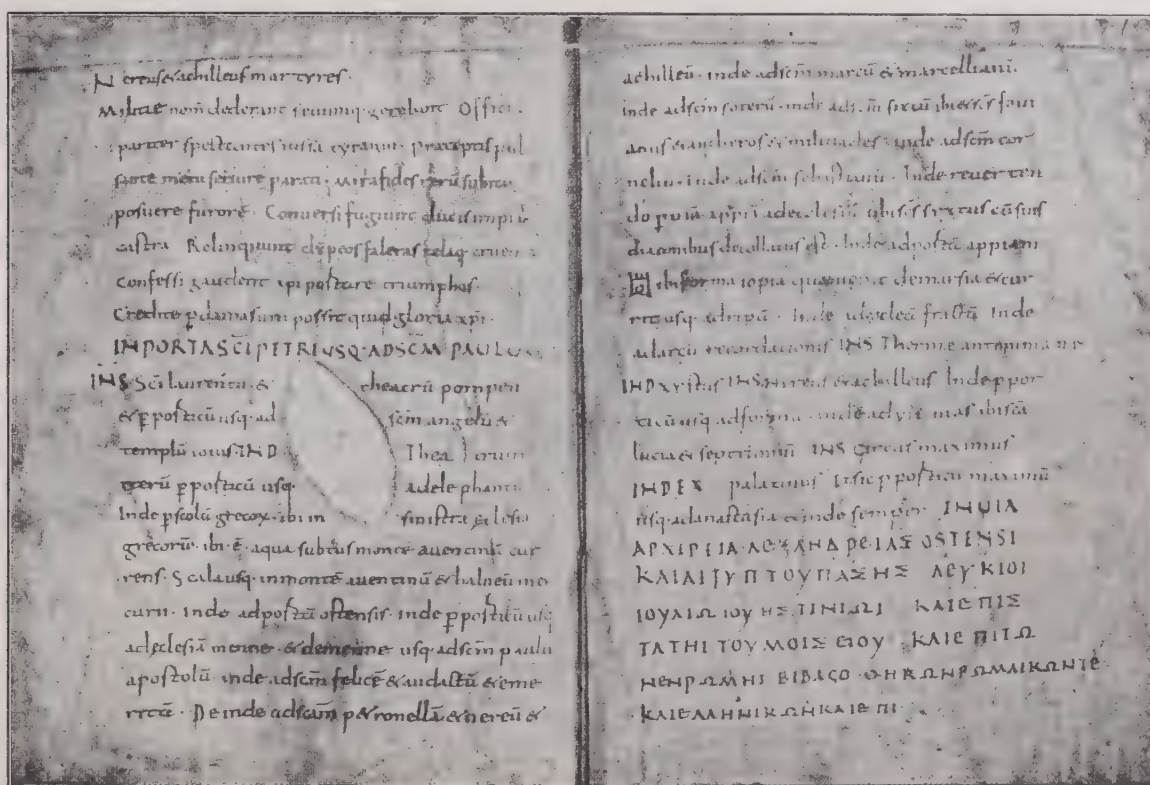 Nereus & achilleus martyres.
Militiae nom̄ dederant seuumq· gerebant Offici
pariter spectantes iussa tyranni· praeceptis pul
sante metu seruire parati· Mira fides rerū subito
posuere furorē· Conuersi fugiunt ducis impia
castra Relinquunt clypeos faleras telaq· cruen
Confessi gaudent xp̄i portare triumphos·
Credite p damasum possit quid gloria xp̄i·
IN PORTA SC̄I PETRI USQ· AD SC̄M PAULUM
INS Sc̄i laurentii & theatrū pompeii
& p porticū usq· ad sc̄m angelū &
templū iouis· IN D Theatrum
iterū p porticū usq· ad elephantū
Inde p scolā grecorꝝ· ibi in sinistra eclesia
grecorū· ibi ē· aqua subtus monte auentinū cur
rens· Scala usq· in monte auentinū & balneū mer
curii· Inde ad portā ostensis· inde p porticū usq·
ad eclesiā menne· & de menne usq· ad sc̄m paulū
apostolū· inde ad sc̄m felicē & audactū & eme
ritā· Deinde ad sc̄am p&ronellā & nereū &
achilleū· inde ad sc̄m marcū & marcellianū·
inde ad sc̄m soterū· inde ad sc̄m sixtū ibi & sc̄s faui
anus & antheros & miltiades· inde ad sc̄m cor
neliū· inde ad sc̄m sebastianū· Inde reuerten
do p uia appia ad ecclesiā ubi sc̄s syxtus cū suis
diaconibus decollatus est· Inde ad portā appiam
ibi forma iopia quae uenit de marsia & cur
rit usq· ad ripā· Inde ad cocleā fractā Inde
ad arcū recordationis INS Thermae antoninianae
IN D xystus INS Nereus & achilleus Inde p por
ticū usq· ad formā· inde ad vii uias ibi sc̄a
lucia & septizoniū INS Circus maximus
IN DEX palatinus Et sic p porticū maximū
usq· ad anastasia & inde semper IN UIA
ΑΡΧΙΡΕΙΑΛΕΞΑΝΔΡΕΙΑΣ OSTENSI
ΚΑΙΑΙΓΥΠΤΟΥΠΑΣΗΣ ΛΕΥΚΙΟΙ
ΙΟΥΛΙΩ ΙΟΥΗΣΤΙΝΙΩΙ ΚΑΙΕΠΙΣ
ΤΑΤΗΙ ΤΟΥ ΜΟΙΣΕΙΟΥ ΚΑΙΕΠΙΤΩ
ΝΕΝΡΩΜΗΙ ΒΙΒΛΕΟ·ΘΗΚΩΝΡΩΜΑΙΚΩΝΤΕ
ΚΑΙΕΛΛΗΝΙΚΩΝΚΑΙΕΠΙ·